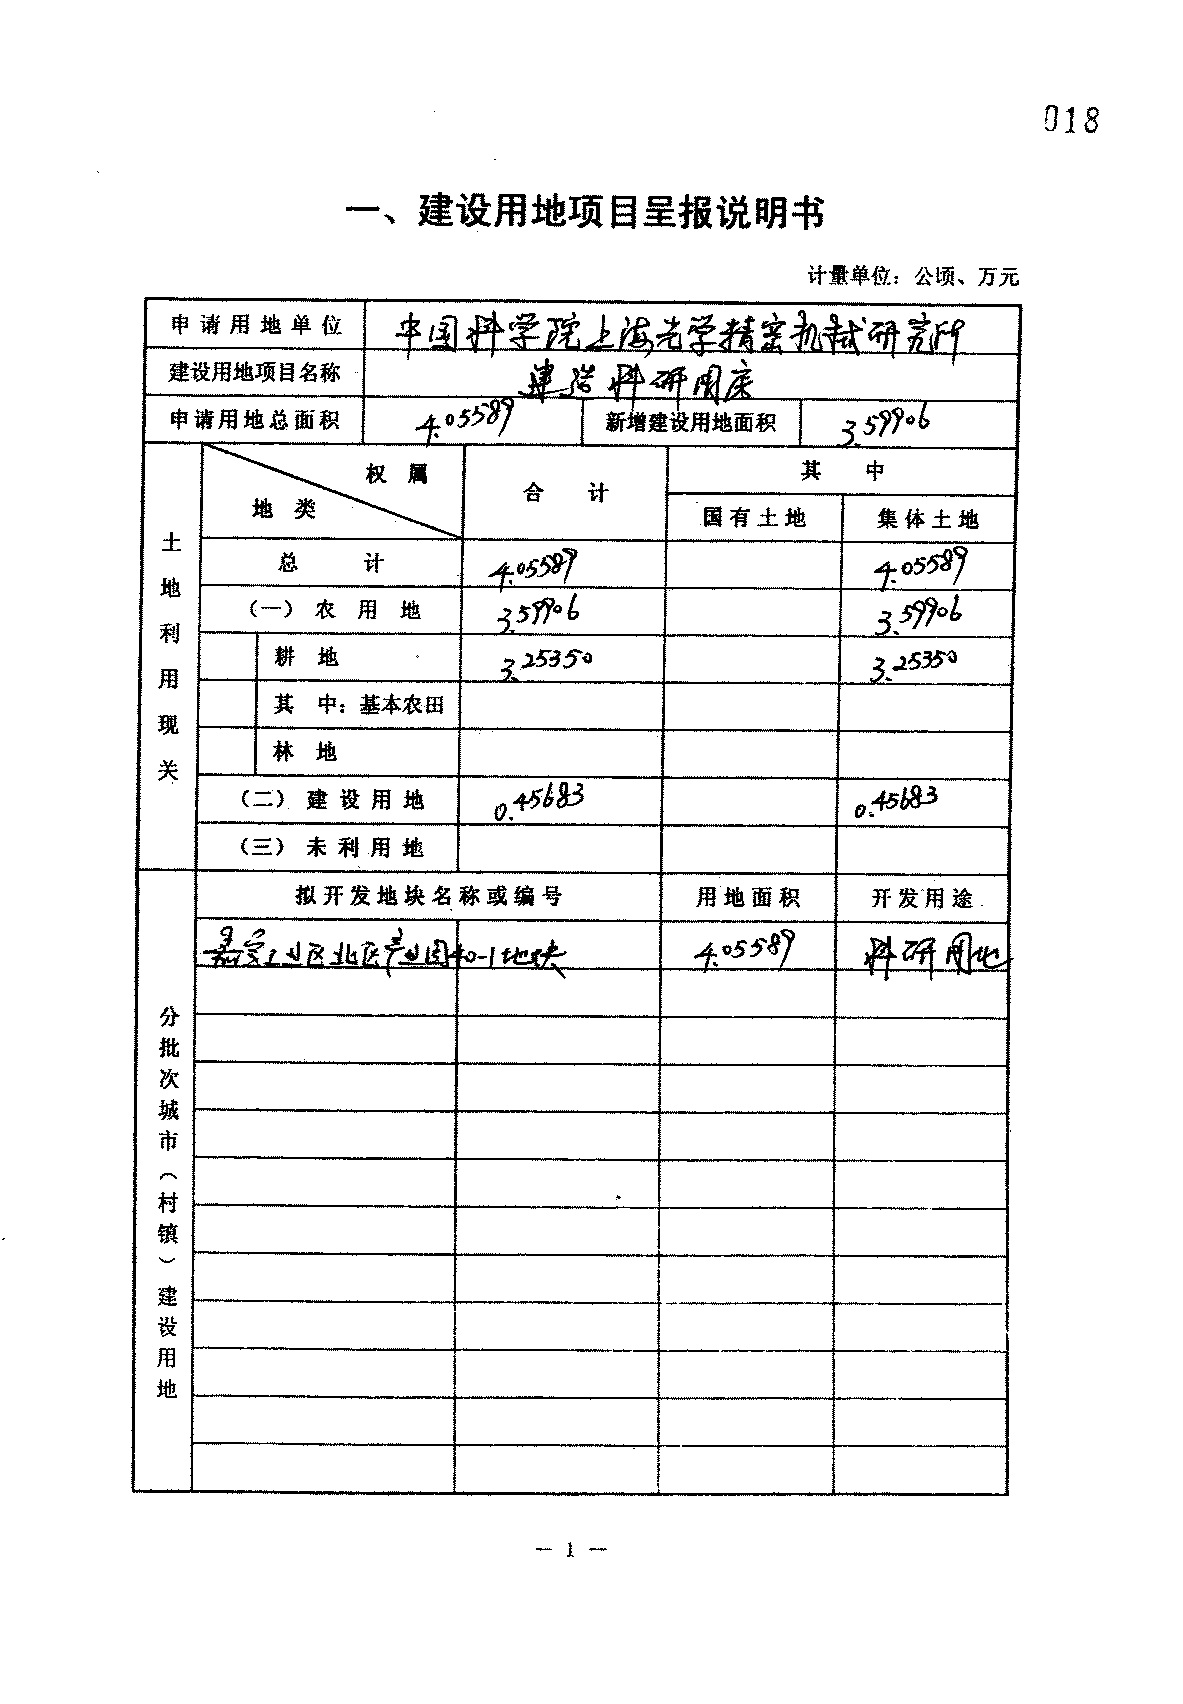 018
一、建设用地项目呈报说明书
计量单位：公顷、万元
申请用地单位 中国科学院上海光学精密机械研究所
建设用地项目名称 建造科研用房
申请用地总面积 4.05589 新增建设用地面积 3.59906
权属 合计 其中
地类 国有土地 集体土地
土地利用现关
总计 4.05589 4.05589
（一）农用地 3.59906 3.59906
耕地 3.25350 3.25350
其中：基本农田
林地
（二）建设用地 0.45683 0.45683
（三）未利用地
分批次城市（村镇）建设用地
拟开发地块名称或编号 用地面积 开发用途
嘉定工业区北区产业园40-1地块 4.05589 科研用地
— 1 —